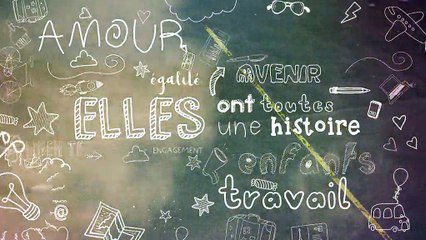 AMOUR
égalité
AVENIR
ELLES
ont toutes
une histoire
ENGAGEMENT
enfants
travail